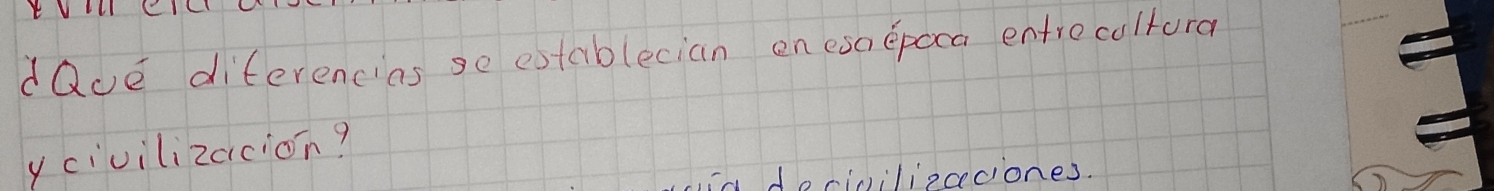 ¿Qué diferencias se establecian en esa época entre cultura
y civilización?
de civilizaciones.